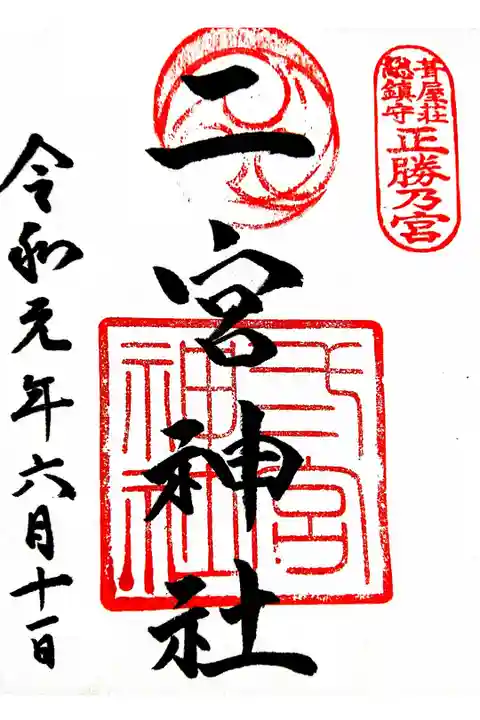 葺屋荘
総鎮守
正勝乃宮
二宮神社
二宮
神社
令和元年六月十一日